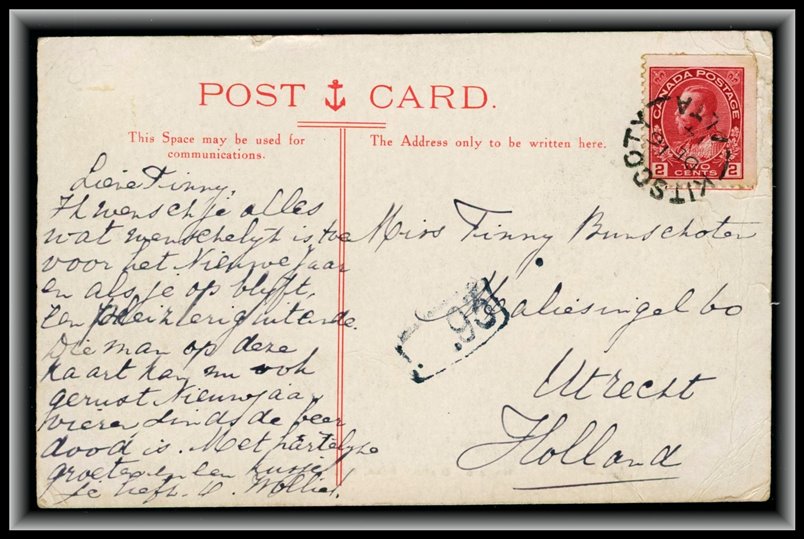 POST CARD.
This Space may be used for
communications.
The Address only to be written here.
Lieve Finny,
Ik wensch je alles
wat wenschelijk is toe
voor het Nieuwe jaar
en als je op blyft,
een
Die man op deze
kaart kan nu ook
gerust Nieuwjaar
vieren sinds de beer
dood is. Met hartelyke
groeten en een kusje
Je liefh. O.
Miss Finny Bunschoten
Maliesingel 60
Utrecht
Holland
95
CANADA POSTAGE
2 TWO CENTS 2
KITSCOTY
ALTA